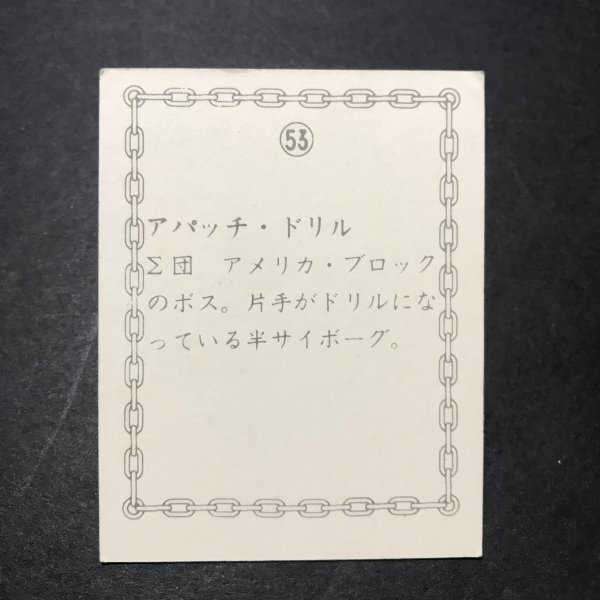 53
アパッチ・ドリル
Σ団　アメリカ・ブロック
のボス。片手がドリルにな
っている半サイボーグ。